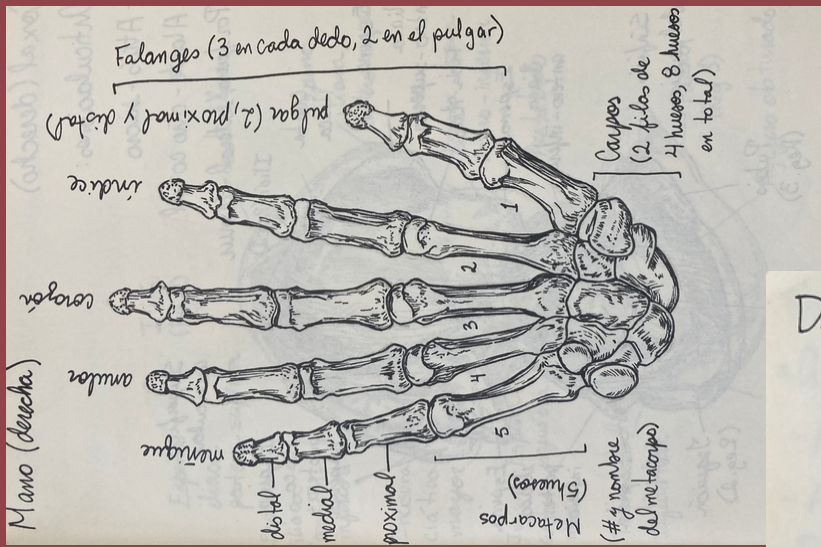 Mano (derecha)
Falanges (3 en cada dedo, 2 en el pulgar)
pulgar (2, proximal y distal)
índice
corazón
anular
meñique
distal
medial
proximal
1
2
3
4
5
Metacarpos
(5 huesos)
(# y nombre
del metacarpo)
Carpos
(2 filas de
4 huesos, 8 huesos
en total)
D